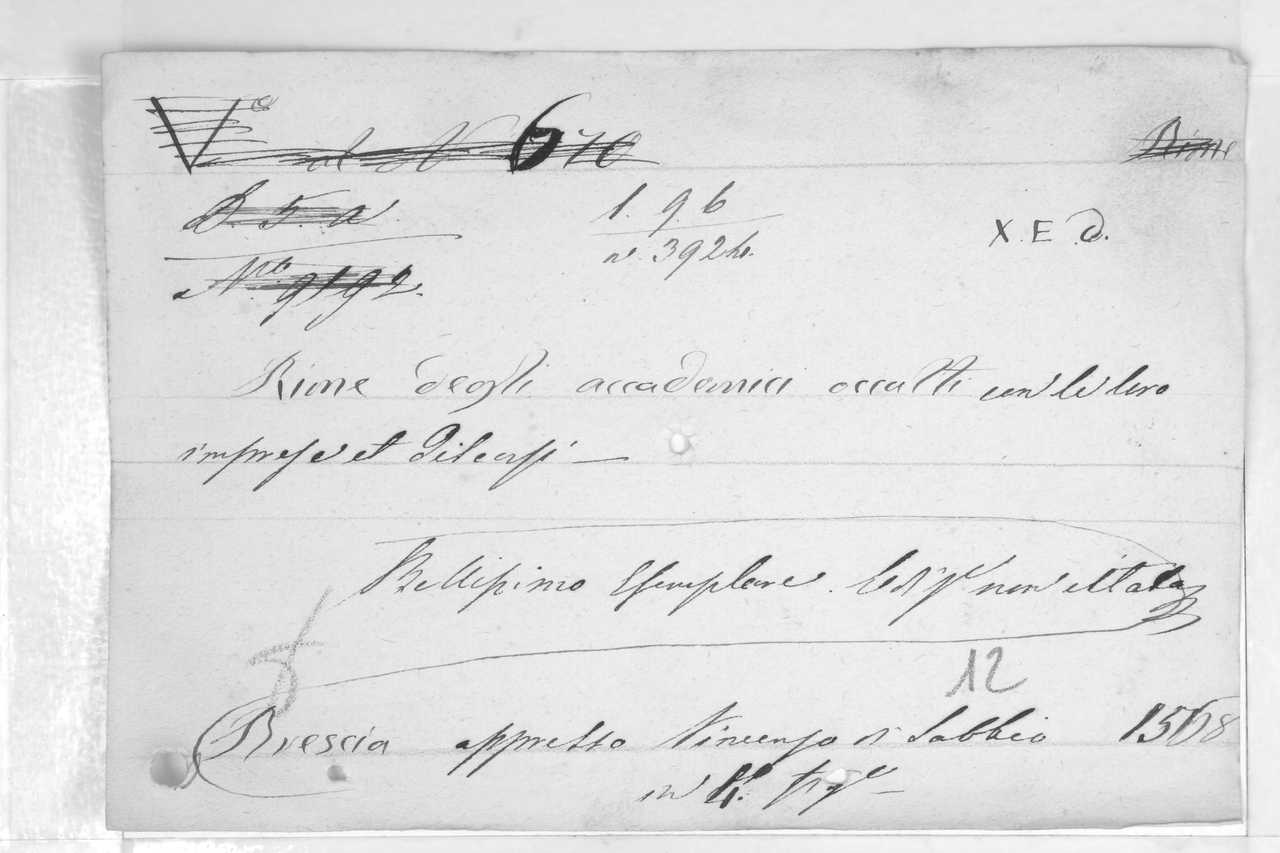 V.e
al N 670
Rime
B. 5. a
1. 9. 6
X. E. d.
N.ro 9192.
n. 3924.
Rime degli accademici occulti con le loro
imprese et discorsi —
Bellissimo Esemplare. Ediz.e non citata
5
12
Brescia appresso Vincenzo di Sabbio 1568
in 4. fig.e —